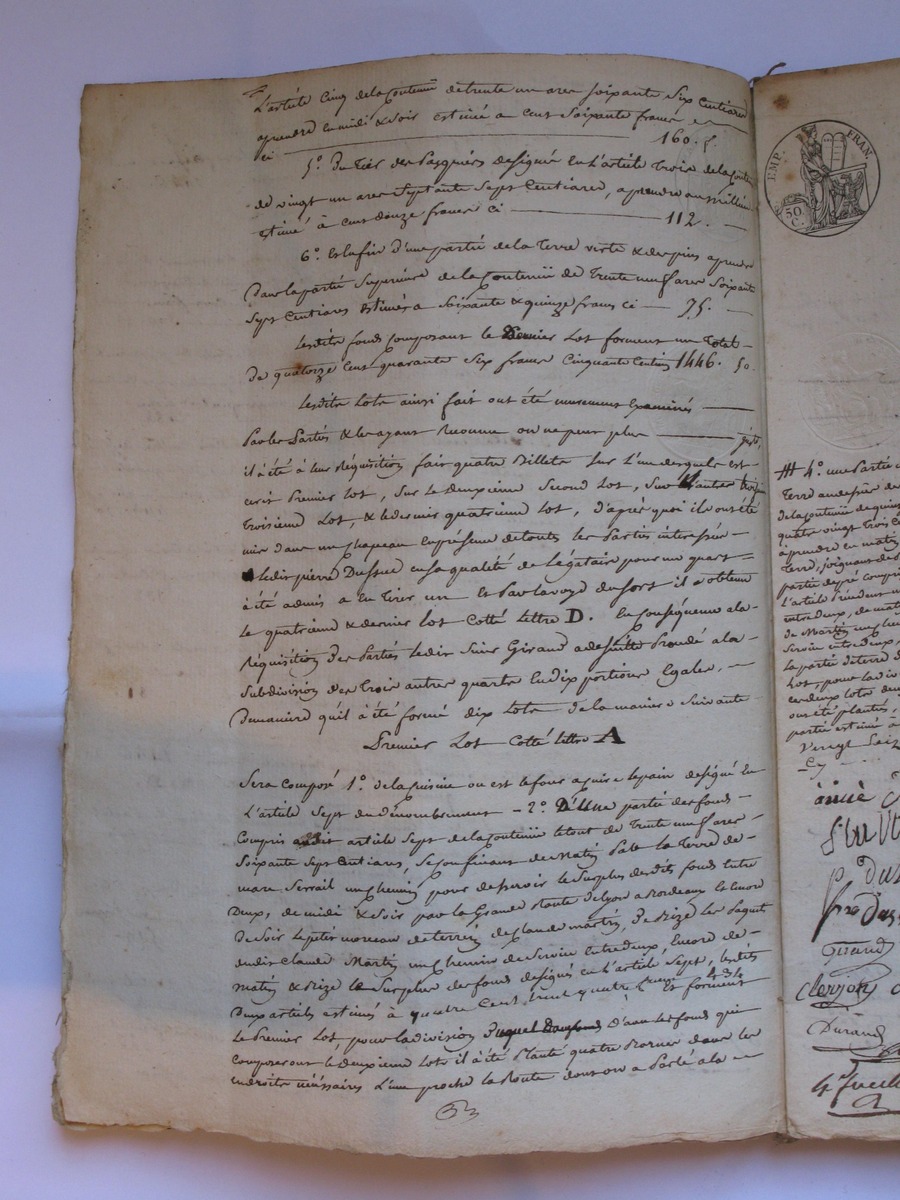 L'article Cinq de la Contenüe de trente un ares soixante Six Centiares
aprendre en midi & soir estimé a Cent Soixante francs
ci 160. f.
5°. Du Tiers des Pasquiers designé en L'article Trois de la Contenüe
de vingt un ares Septante Sept Centiares, a prendre au Millieu
estimé à Cent douze francs ci 112.
6°. Et enfin d'une partie de la Terre verte & des pins aprendre
dans la partie Superieure de la Contenüe de Trente neuf ares Soixante
Sept Centiares Estimés a Soixante & quinze francs ci 75.
Lesdits fonds Composant le Dernier Lot forment un Total
De quatorze Cent quarante Six francs Cinquante Centimes 1446. 50
Lesdits Lots ainsi fait ont été murement Examinés
Par les Parties & les ayant Reconnu on ne peut plus juste,
il à été à leur Réquisition fait quatre Billets Sur L'un desquels est
ecrit Premier Lot, Sur Le deuxieme Second Lot, Sur L'autre
Troisieme Lot, & le dernier quatrieme Lot, d'après quoi ils ont été
mis dans un Chapeau En présence de touts les Parties interessées
Ledit pierre Dussud en sa qualité de Légataire pour un quart
à été admis a En Tirer un Et Par La voye du Sort il a obtenu
Le quatrieme & dernier Lot Cotté Lettre D. En Conséquence a la
Réquisition des Parties Ledit Sieur Giraud a de Suitte Procedé a la
Subdivision des Trois autres quarts En dix portions Egales,
De maniere qu'il à été formé dix Lots de la maniere Suivante
Premier Lot Cotté Lettre A
Sera Composé 1°. de la Cuisine ou est le four a cuire le pain designé En
L'article Sept du dénombrement 2°. D'une partie des fonds
Compris audit article Sept de la Contenüe le tout de Trente neuf ares
Soixante Sept Centiares, Se Confinant de Matin Par la Terre de
mare Serrail un Chemin pour desservir le Surplus desdits fonds Entre
Deux, de midi & Soir par la Grande Route de Lyon a Bordeaux Encore
De Soir le petit morceau de terrein de Claude martin, De Bize les Paquis
dudit Claude Martin un Chemin de Service Entre deux, Encore de
matin & Bize le Surplus des fonds designés en L'article Sept, Lesdits
Deux articles estimés à quatre Cent trente quatre francs 434 Et forment
Le Premier Lot, pour la division D'avec les fonds qui
Composeront le deuxieme Lot il à été Planté quatre Bornes dans les
endroits nécessaires L'une proche la Route dont on a Parlé a la
EMP. FRAN.
50 C.
# 4°. une Partie
Terre au dessus de
de la Contenüe de quinze
quatre vingt Trois
aprendre en matin
Terre, joignant
partie de pré compris
L'article
entre deux, de matin
de Martin un chemin
Service entre deux,
la partie de terre
Lot, pour la
ces deux lots
ont été plantés,
partie estimée à
Giraud
Clerjon
Durand